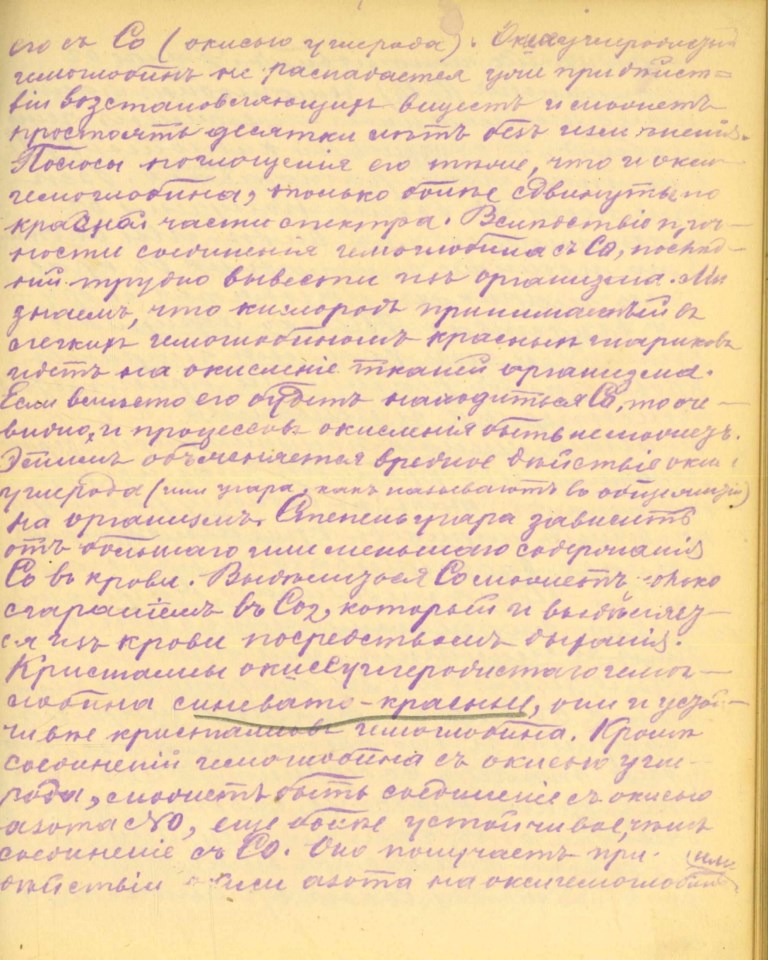 его съ Co (окисью углерода). Окисоуглеродный
гемоглобинъ не распадается уже при дѣйст=
віи возстановляющихъ веществъ и можетъ
простоять десятки лѣтъ безъ измѣненія.
Полосы поглощенія его тѣже, что и окси-
гемоглобина, только болѣе сдвинуты по
красной части спектра. Вслѣдствіе проч-
ности соединенія гемоглобина съ Co, послѣд-
ній трудно вывести изъ организма. Мы
знаемъ, что кислородъ принимаемый въ
легкихъ гемоглобиномъ красныхъ шариковъ
идетъ на окисленіе тканей организма.
Если вмѣсто его будетъ находиться Co, то оче-
видно, и процессовъ окисленія быть не можетъ.
Этимъ объясняется вредное дѣйствіе окиси
углерода (или угара, какъ называютъ въ общежитіи)
на организмъ. Степень угара зависитъ
отъ большаго или меньшаго содержанія
Co въ крови. Выдѣлиться Co можетъ только
сгараніемъ въ Co2, который и выдѣляет-
ся изъ крови посредствомъ дыханія.
Кристаллы окисеуглеродистаго гемо-
глобина синевато-красны, они и устой-
чивѣе кристалловъ гемоглобина. Кромѣ
соединеній гемоглобина съ окисью угле-
рода, можетъ быть соединеніе съ окисью
азота NO, еще болѣе устойчивое, чѣмъ
соединеніе съ Co. Оно получаетъ при- или
дѣйствіи окиси азота на оксигемоглобинъ